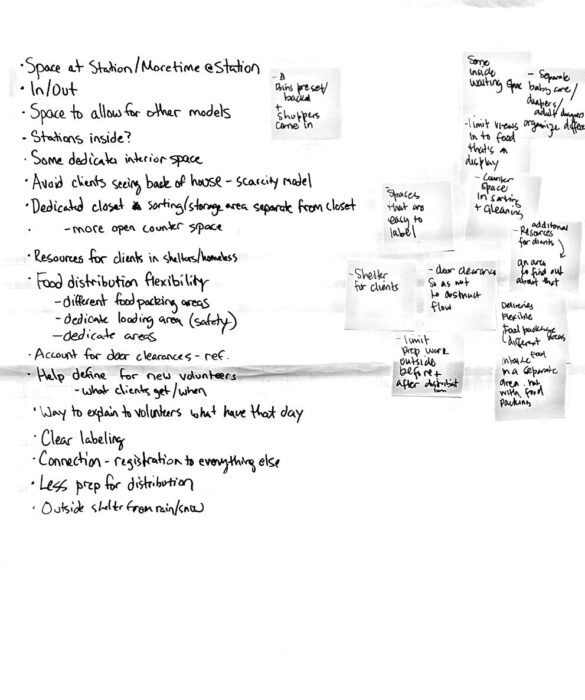 · Space at Station/More time @ Station
· In/Out
· Space to allow for other models
· Stations inside?
· Some dedicata interior space
· Avoid clients seeing back of house - scarcity model
· Dedicated closet & sorting/storage area separate from closet
· - more open counter space
· Resources for clients in shelters/homeless
· Food distribution flexibility
- different food packing areas
- dedicate loading area (safety)
- dedicate areas
· Account for door clearances - ref.
· Help define for new volunteers
- what clients get/when
· Way to explain to volunteers what have that day
· Clear labeling
· Connection - registration to everything else
· Less prep for distribution
· Outside shelter from rain/snow
preset/
+
Shoppers
come in
Some
inside
waiting space
- Separate
baby care/
diapers/
adult diapers
organize different
- limit views
in to food
that's on
display
- Counter
space
in sorting
+ Gleaning
Spaces
that are
easy to
label
additional
- Resources
for clients
an area
to find out
about that
- Shelter
for clients
- door clearance
so as not
to obstruct
flow
Deliveries
flexible
food package
different areas
- limit
prep work
outside
before +
after distribution
food
intake
in a separate
area. not
with food
packing